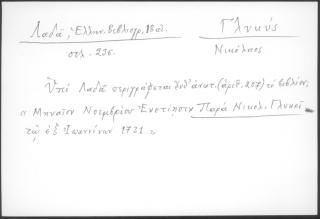 Λαδᾶ, Ἑλλην. βιβλιογρ. 18 αἰ.
Γλυκύς
σελ. 236.
Νικόλαος
Ὑπὸ Λαδᾶ περιγράφεται ὑπ' ἀριθ. (ἀριθ. 207) τὸ βιβλίον,
Μηναῖον Νοεμβρίου Ἐνετίησιν Παρὰ Νικολ. Γλυκεῖ
τῷ ἐξ Ἰωαννίνων 1731